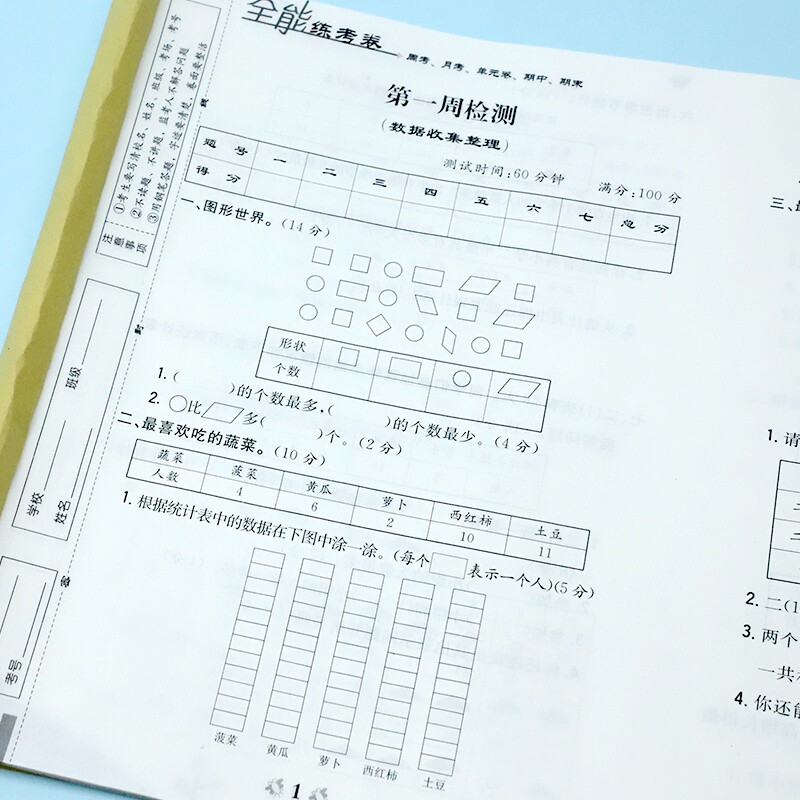 全能练考卷
周考、月考、单元卷、期中、期末
第一周检测
(数据收集整理)
测试时间:60分钟 满分:100分
题号 一 二 三 四 五 六 七 总分
得分
一、图形世界。(14分)
形状
个数
1.( )的个数最多,( )的个数最少。(4分)
2. 比 多( )个。(2分)
二、最喜欢吃的蔬菜。(10分)
蔬菜 菠菜 黄瓜 萝卜 西红柿 土豆
人数 4 6 2 10 11
1.根据统计表中的数据在下图中涂一涂。(每个 表示一个人)(5分)
菠菜 黄瓜 萝卜 西红柿 土豆
1
注意事项
①考生要写清校名、姓名、班级、考场、考号
②不读题、不讲题,监考人不解答问题
③用钢笔答题,字迹要清楚,卷面要整洁
班级
学校
姓名
考号
三、
1.请
2.二(1
3.两个
一共
4.你还能